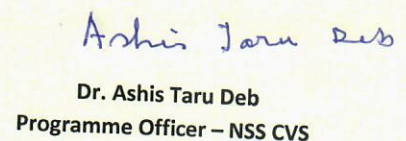 Ashis Taru Deb
Dr. Ashis Taru Deb
Programme Officer – NSS CVS